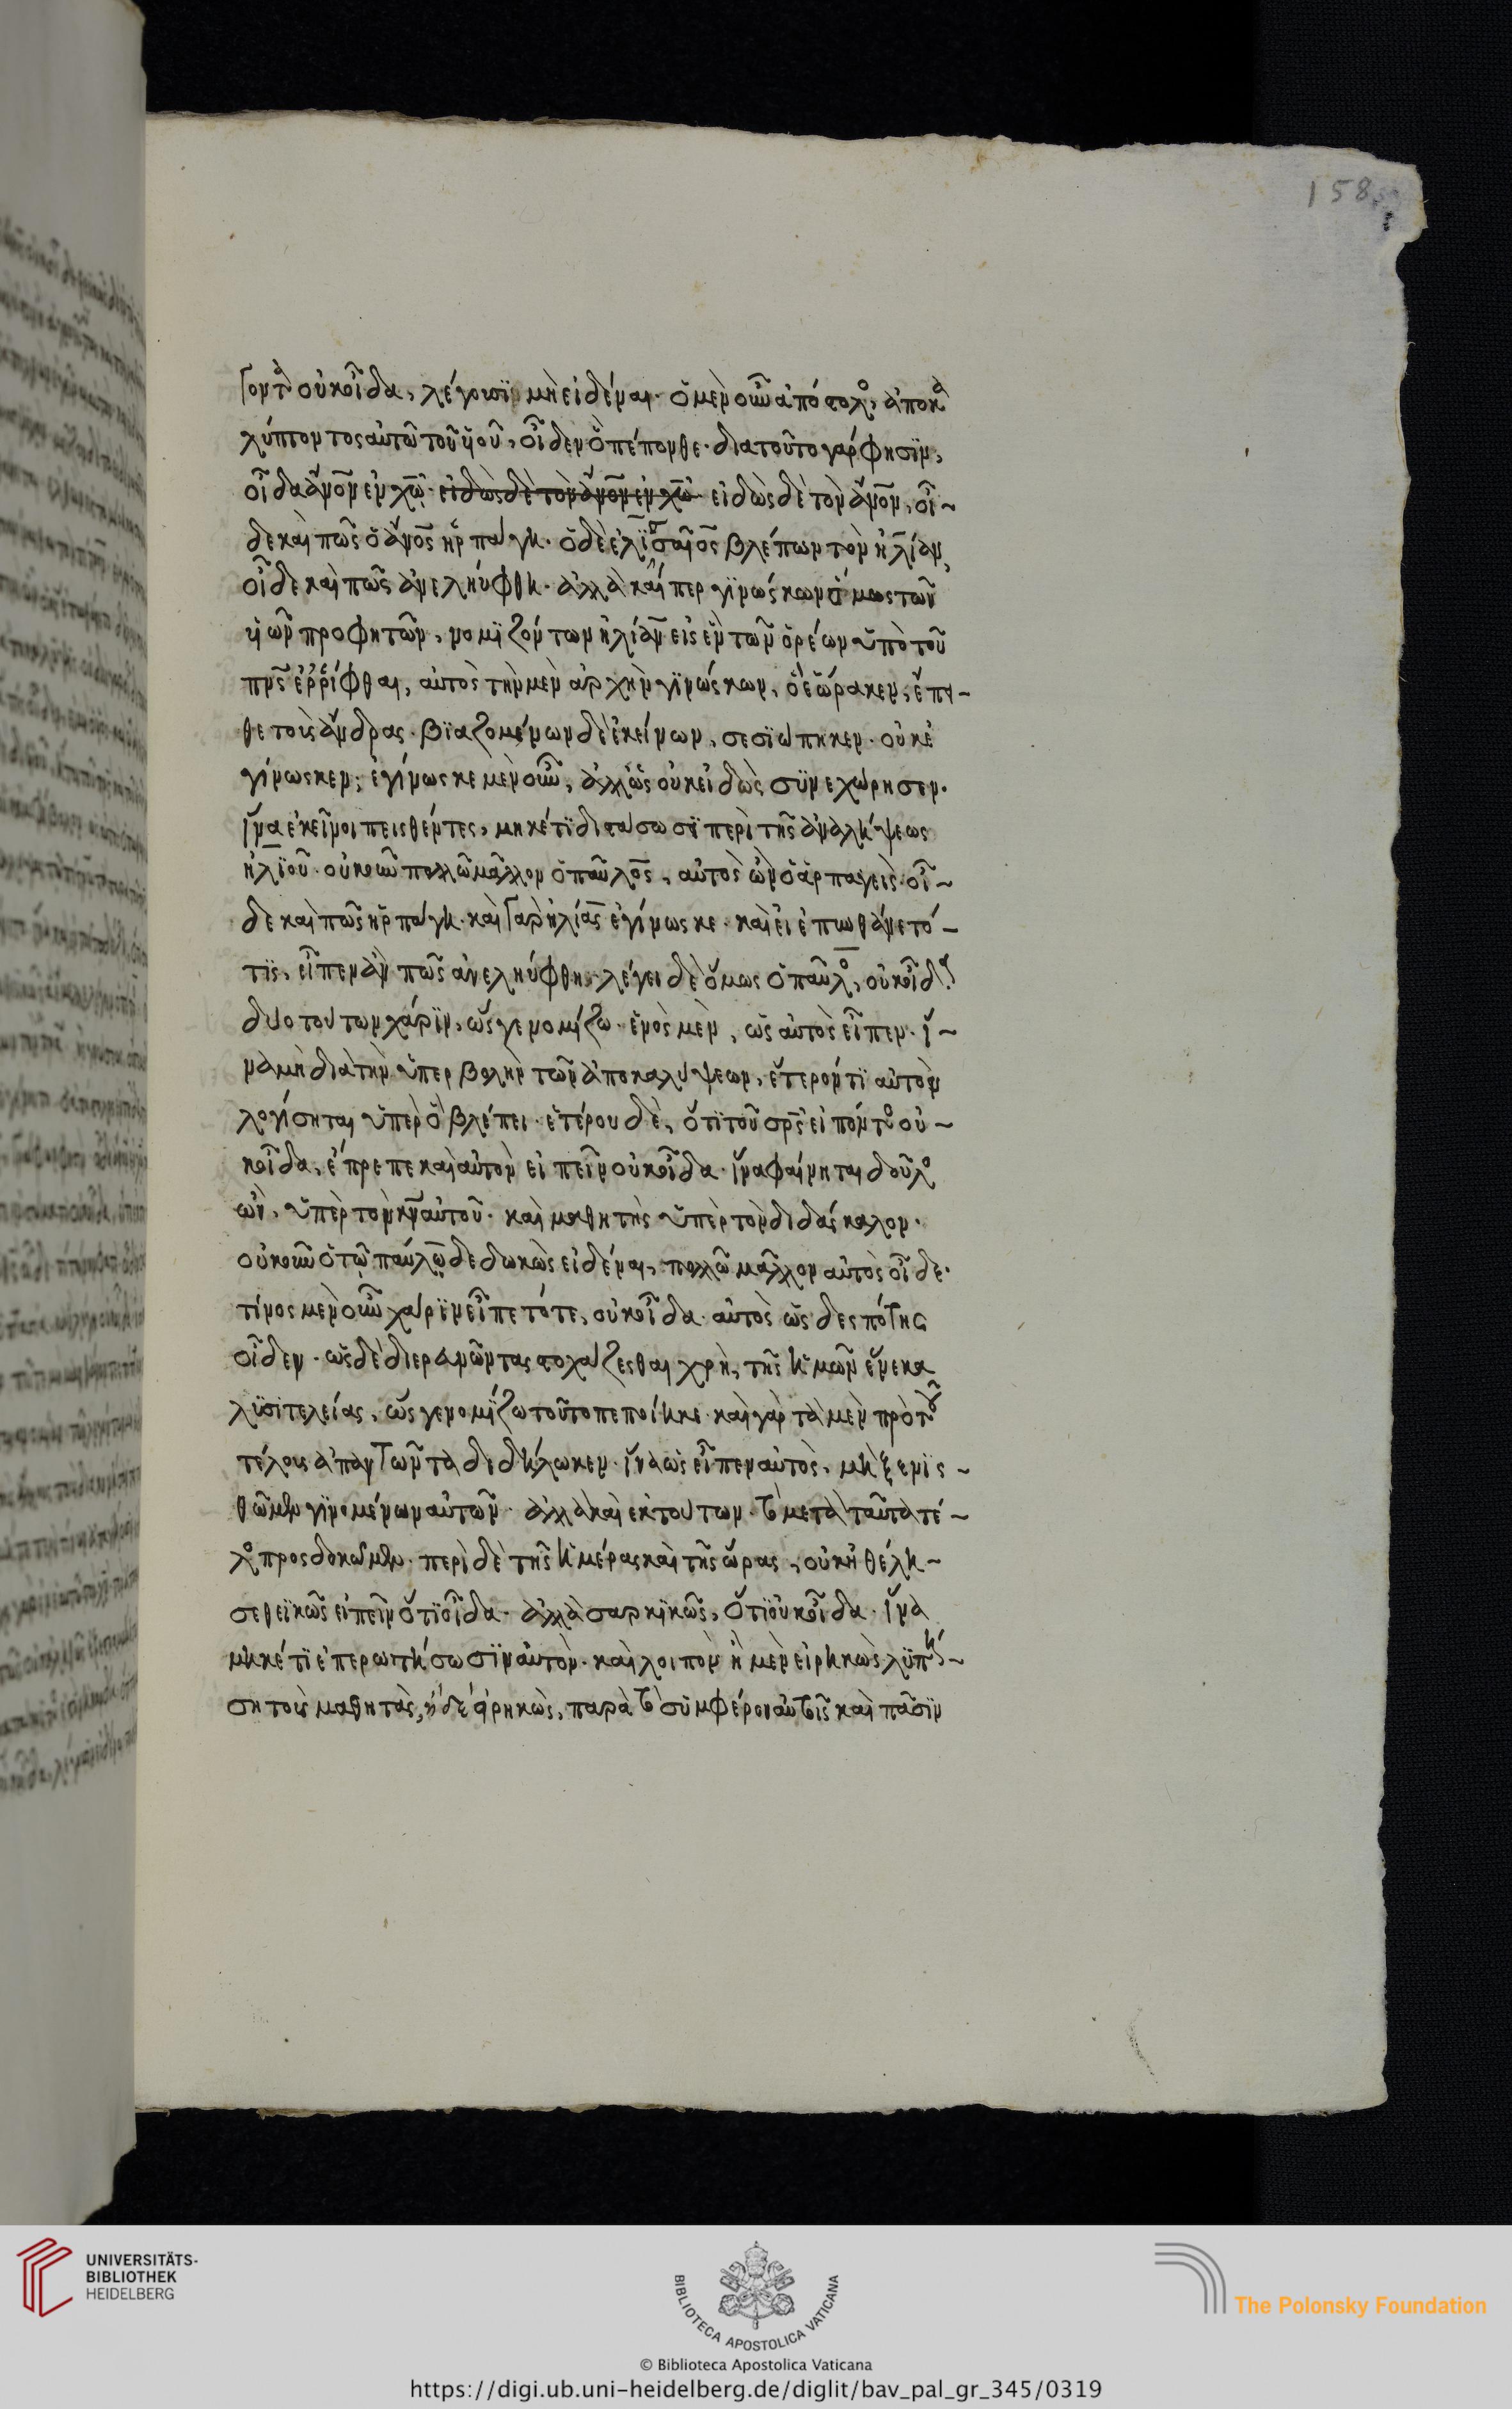 158
γοντα οὐκ οἶδα, λέγουσι μὴ εἰδέναι. ὁ μὲν οὖν ἀπόστολος, ἀποκα
λύπτοντος αὐτῶ τοῦ υἱοῦ, οἶδεν ὃ πέπονθε. διατοῦτο γὰρ φησϊν,
οἶδα ἄνον ἐν χῶ. εἰδὼς δὲ τὸν ἄνον ἐν χῶ εἰδὼς δὲ τὸν ἄνον, οἶ-
δε καὶ πῶς ὁ ἄνος ἡρπάγη. ὁ δὲ ἐλϊσσαῖος βλέπων τὸν ἠλίαν,
οἶδε καὶ πῶς ἀνελήφθη. ἀλλὰ καίπερ γϊνώσκων ὅμως τῶν
υἱῶν προφητῶν, νομϊζόντων ἠλίαν εἰς ἓν τῶν ὀρέων ὑπὸ τοῦ
πνς ἐρρίφθαι, αὐτὸς τὴν μὲν ἀρχὴν γϊνώσκων, ὃ ἑώρακεν, ἔπει-
θε τοὺς ἄνδρας. βϊαζομένων δὲ ἐκείνων, σεσϊώπηκεν. οὐκ ἐ
γίνωσκεν; ἐγίνωσκε μὲν οὖν, ἀλλ' ὡς οὐκ εἰδὼς συνεχώρησεν.
ἵνα ἐκεῖνοι πεισθέντες, μηκέτϊ διστάσωσϊ περὶ τῆς ἀναλήψεως
ἠλϊοῦ. οὐκοῦν πολλῶ μᾶλλον ὁ παῦλος, αὐτὸς ὢν ὁ ἁρπαγεὶς. οἶ-
δε καὶ πῶς ἡρπάγη. καὶ γὰρ ἠλίας ἐγίνωσκε. καὶ εἰ ἐπυνθάνετό-
τϊς, εἶπεν ἂν πῶς ἀνελήφθη. λέγει δὲ ὅμως ὁ παῦλος, οὐκ οἶδα.
δυο τούτων χάρϊν, ὥς γε νομίζω. ἑνὸς μὲν, ὡς αὐτὸς εἶπεν. ἵ-
να μὴ διὰ τὴν ὑπερβολὴν τῶν ἀποκαλύψεων, ἕτερόν τϊ αὐτὸν
λογίσηται ὑπὲρ ὃ βλέπει. ἑτέρου δὲ, ὅτϊ τοῦ σρς εἰπόντος οὐ-
κ οἶδα, ἔπρεπε καὶ αὐτὸν εἰπεῖν οὐκ οἶδα. ἵνα φαίνηται δοῦλος
ὢν, ὑπὲρ τὸν κν αὐτοῦ. καὶ μαθητὴς ὑπὲρ τὸν διδάσκαλον.
οὐκοῦν ὁ τῶ παύλω δεδωκὼς εἰδέναι, πολλῶ μᾶλλον αὐτὸς οἶδε.
τίνος μὲν οὖν χάρϊν εἶπε τότε, οὐκ οἶδα. αὐτὸς ὡς δεσπότης
οἶδεν. ὡς δὲ διερευνῶντας στοχάζεσθαι χρὴ, τῆς ἡμῶν ἕνεκα
λϋσϊτελείας, ὥς γε νομϊζω τοῦτο πεποίηκε. καὶ γὰρ τὰ μὲν πρὸ τοῦ
τέλους ἀπαντῶντα δεδήλωκεν. ἵνα ὡς εἶπεν αὐτὸς, μὴ ξενϊσ-
θῶμεν γϊνομένων αὐτῶν. ἀλλὰ καὶ ἐκ τούτων. τὸ μετὰ ταῦτα τέ-
λος προσδοκῶμεν. περὶ δὲ τῆς ἡμέρας καὶ τῆς ὥρας, οὐκ ἠθέλη-
σε θεϊκῶς εἰπεῖν ὅτϊ οἶδα. ἀλλὰ σαρκϊκῶς, ὅτϊ οὐκ οἶδα. ἵνα
μηκέτϊ ἐπερωτήσωσϊν αὐτὸν. καὶ λοιπὸν ἢ μὲν εἰρηκὼς λϋπή-
ση τοὺς μαθητὰς, ἢ δὲ εἰρηκὼς, παρὰ τὸ συμφέρον αὐτοῖς καὶ πᾶσϊν
UNIVERSITÄTS-
BIBLIOTHEK
HEIDELBERG
BIBLIOTECA APOSTOLICA VATICANA
The Polonsky Foundation
© Biblioteca Apostolica Vaticana
https://digi.ub.uni-heidelberg.de/diglit/bav_pal_gr_345/0319